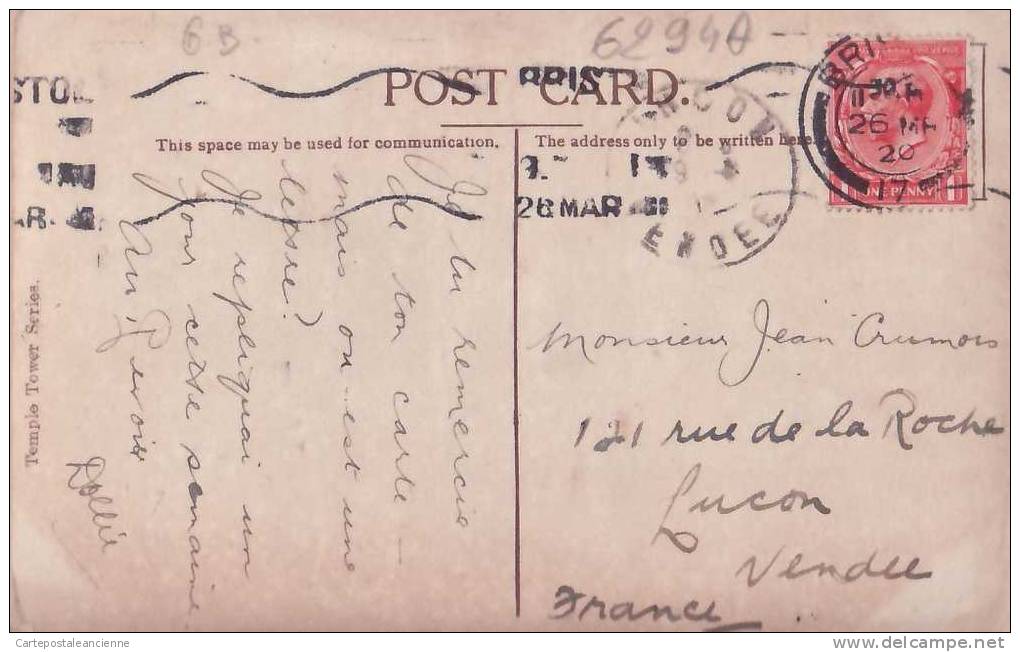 6B
62940
POST CARD.
This space may be used for communication.
The address only to be written here.
BRIS
26 MAR
STOL
AR
BRI
26 MR
20
ONE PENNY
ENDEE
Je tu remercie
de ton carte –
mais ou est une
lettre?
Je repliquai un
jour cette semaine
Au Revoir
Dollie
Monsieur Jean
121 rue de la Roche
Lucon
Vendee
France
Temple Tower Series.
Cartepostaleancienne
www.delcampe.net